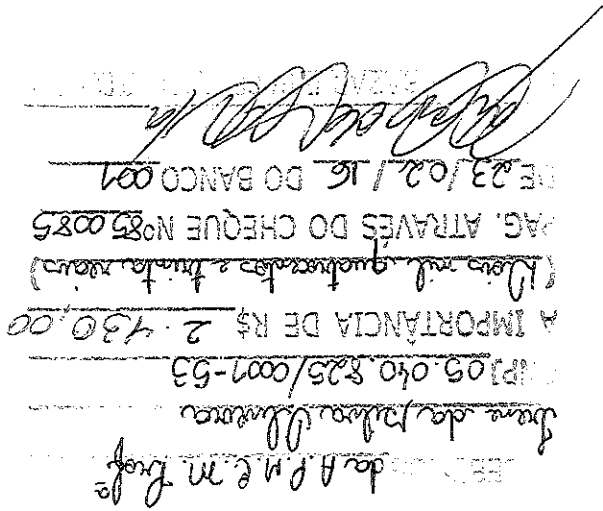 da A.P.M.C.M. Profª
Irene da Silva Oliveira
CNPJ 05.040.825/0001-53
A IMPORTÂNCIA DE R$ 2.430,00
(Dois mil, quatrocentos e trinta reais)
PAG. ATRAVÉS DO CHEQUE Nº 850085
DE 23/02/16 DO BANCO 001